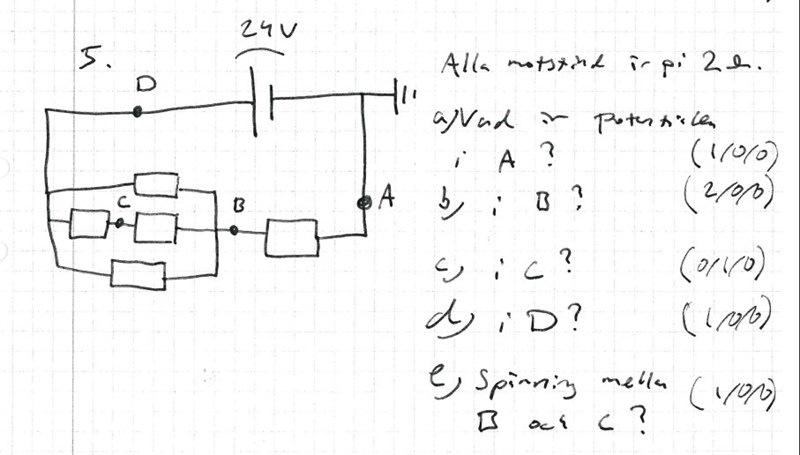 24V
5.
D
Alla motstånd är på 2 Ω.
a) Vad är potentialen
i A? (1/0/0)
C
B
A
b) i B? (2/0/0)
c) i C? (0/1/0)
d) i D? (1/0/0)
e) Spänning mellan (1/0/0)
B och C?